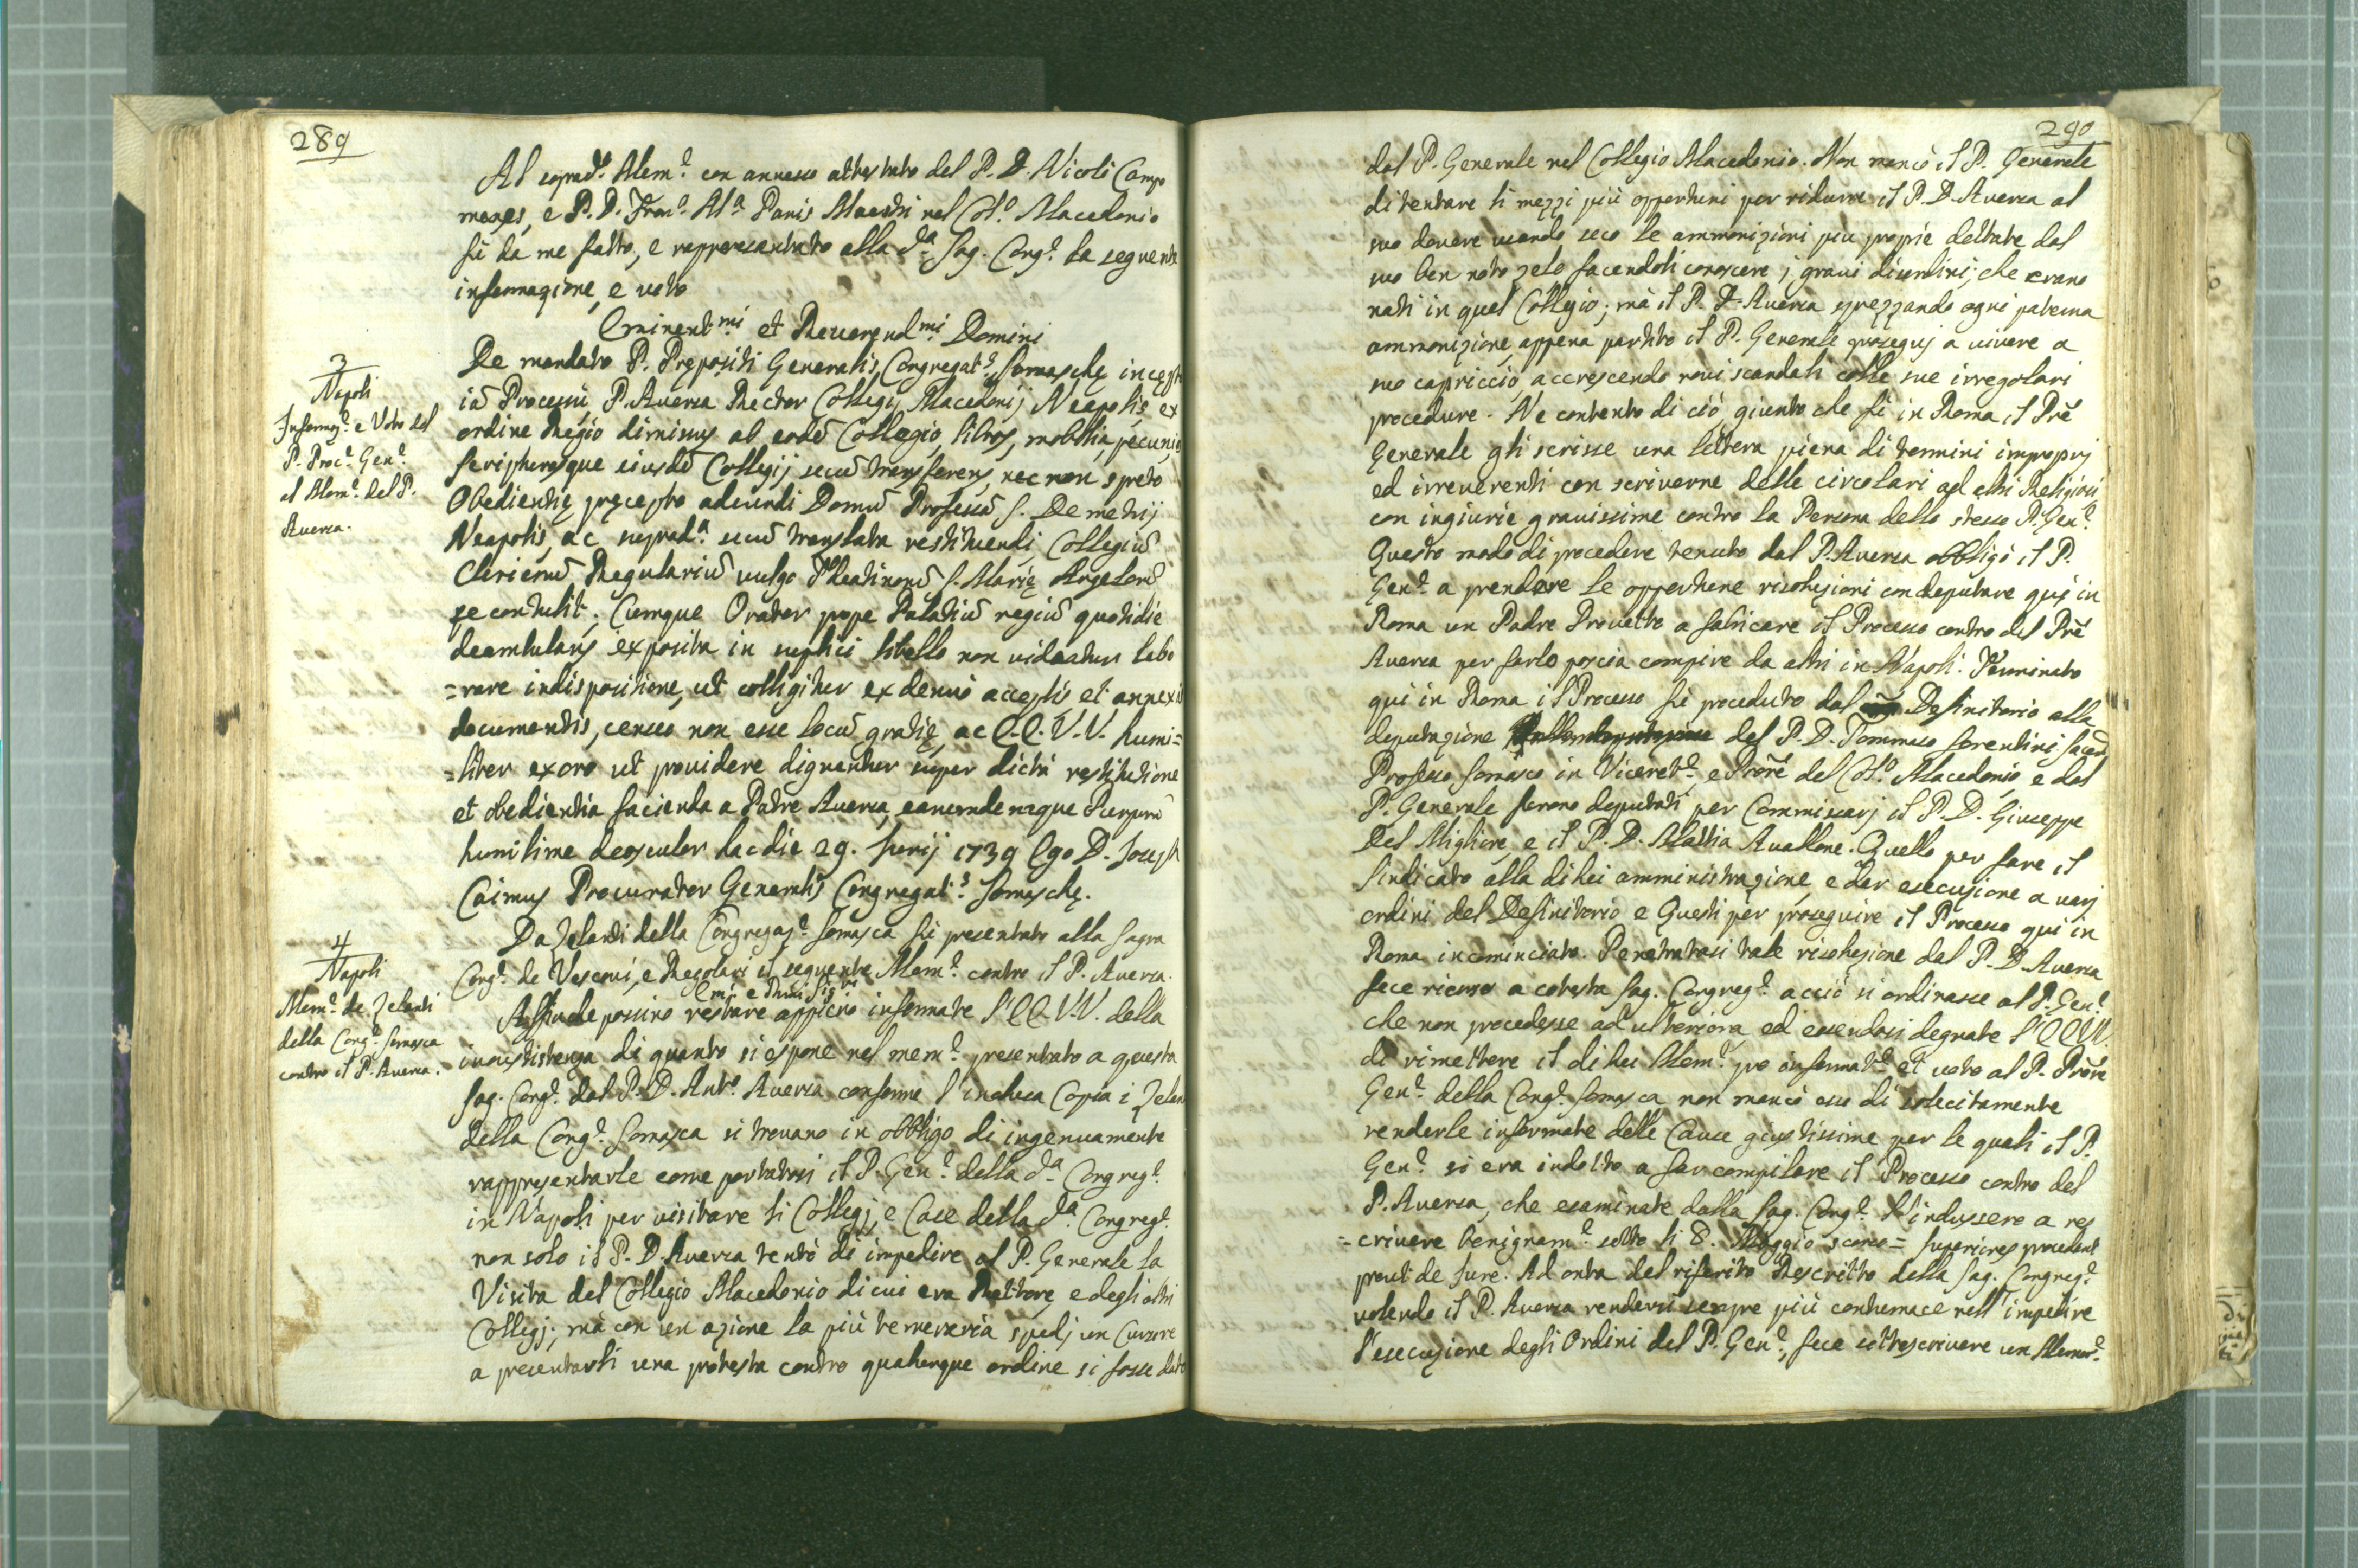 289
Al soprad.º Mem.e con annesso attestato del P. D. Nicolò Campo
menes, e P. D. Fran.º M.ª Panis Maestri nel Coll.º Macedonio
fù da me fatto, e rappresentato alla d.ª Sag. Cong.e la seguente
informazione, e voto
Eminent.mi et Reverend.mi Domini
3
Napoli
Informaz.e e Voto del
P. Proc.e Gen.e
al Mem.e del P.
Aversa.
De mandato P. Prępositi Generalis Congregat.s Somaschę incępto
iā Processu P. Aversa Rector Collegij Macedonij Neapolis ex
ordine Regio dimissus ab eodē Collegio, libros, mobilia, pecunias
scripturasque eiusdē Collegij secū transferens, nec non spreto
Obedientię pręcepto adeundi Domū Professā S. Demetrij
Neapolis, ac suprad.ª secū translata restituendi Collegiū
Clericorū Regulariū vulgo Theatinorū S. Marię Angelorū
se contulit. Cumque Orator prope Palatiū regiū quotidie
deambulans exposita in supplici libello non videatur labo
=rare indispositione, ut colligitur ex denuò acceptis et annexis
documentis, censeo non esse locū gratię, ac E.E. V.V. humi=
=liter exoro ut providere dignentur super dictā restitutione
et obedientia facienda a Patre Aversa, earumdemque Purpurā
humilime deosculor hac die 29. Junij 1739 Ego D. Joseph
Caimus Procurator Generalis Congregat.s Somaschę.
4
Napoli
Mem.e de Zelanti
della Cong.e Somasca
contro il P. Aversa.
Da Zelanti della Congregaz.e Somasca fù presentato alla Sagra
Cong.e de Vescovi, e Regolari il seguente Mem.e contro il P. Aversa.
Emi e Rmi Sig.ri
Affinche possino restare appieno informate l'EE.VV. della
inussistenza di quanto si espone nel mem.e presentato a questa
Sag. Cong.e dal P. D. Ant.º Aversa conforme l'inclusa Copia i Zelan
della Cong.e Somasca si trovano in obbligo di ingenuamente
rappresentarle come portatosi il P. Gen.e della d.ª Congreg.e
in Napoli per visitare li Collegj, e Case della d.ª Congreg.e
non solo il P. D. Aversa tentò di impedire al P. Generale la
Visita del Collegio Macedonio di cui era Rettore, e degli altri
Collegj; mà con un azione la più temeraria spedì un Cursore
a presentarli una protesta contro qualunque ordine si fosse dato
290
dal P. Generale nel Collegio Macedonio. Non mancò il P. Generale
di tentare li mezzi più opportuni per ridurre il P. D. Aversa al
suo dovere usando seco le ammonizioni più proprie dettate dal
suo ben noto zelo facendoli conoscere i gravi disordini, che erano
nati in quel Collegio; mà il P. D. Aversa sprezzando ogni paterna
ammonizione, appena partito il P. Generale proseguj a vivere a
suo capriccio, accrescendo novi scandali colle sue irregolari
procedure. Ne contento di ciò, giunto che fù in Roma il Prē
Generale gli scrisse una lettera piena di termini improprj
ed irreverenti con scriverne delle circolari ad altri Religiosi
con ingiurie gravissime contro la Persona dello stesso P. Gen.e
Questo modo di procedere tenuto dal P. Aversa obbligò il P.
Gen.e a prendere le opportune risoluzioni con deputare quì in
Roma un Padre Provetto a fabricare il Processo contro del Prē
Aversa per farlo poscia compire da altri in Napoli. Terminato
quì in Roma il Processo fù proceduto dal Definitorio alla
deputazione del P. D. Tommaso Sorentini Saced.
Professo Somasco in Viceret.e, e Prorē del Coll.º Macedonio, e dal
P. Generale furono deputati per Commissarj il P. D. Giuseppe
Del Migliore, e il P. D. Mattia Avallone. Quello per fare il
Sindicato alla di lui amministrazione, e dar esecuzione a varj
ordini del Definitorio e Questi per proseguire il Processo qui in
Roma incominciato. Penetratasi tale risoluzione dal P. D. Aversa
fece ricorso a cotesta Sag. Congreg.e acciò si ordinasse al P. Gen.e
che non procedesse ad ulteriora, ed essendosi degnate l'EE.VV.
di rimettere il di lui Mem.e pro informat.e et voto al P. Prorē
Gen.e della Cong.e Somasca non mancò esso di sollecitamente
renderle informate delle Cause giustissime per le quali il P.
Gen.e si era indotto a far compilare il Processo contro del
P. Aversa, che esaminate dalla Sag. Cong.e l'indussero a res
=crivere benignam.e sotto li 8. Maggio scorso = Superiores procedant
prout de Jure. Ad onta del riferito Rescritto della Sag. Congreg.e
volendo il P. Aversa rendersi sempre più contumace nell'impedire
l'esecuzione degli Ordini del P. Gen.e, fece sottoscrivere un Memor.e